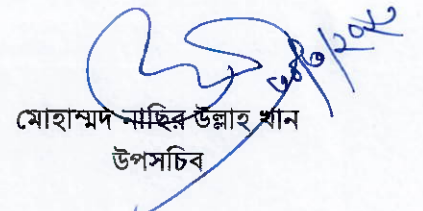 মোহাম্মদ নাছির উল্লাহ খান
উপসচিব